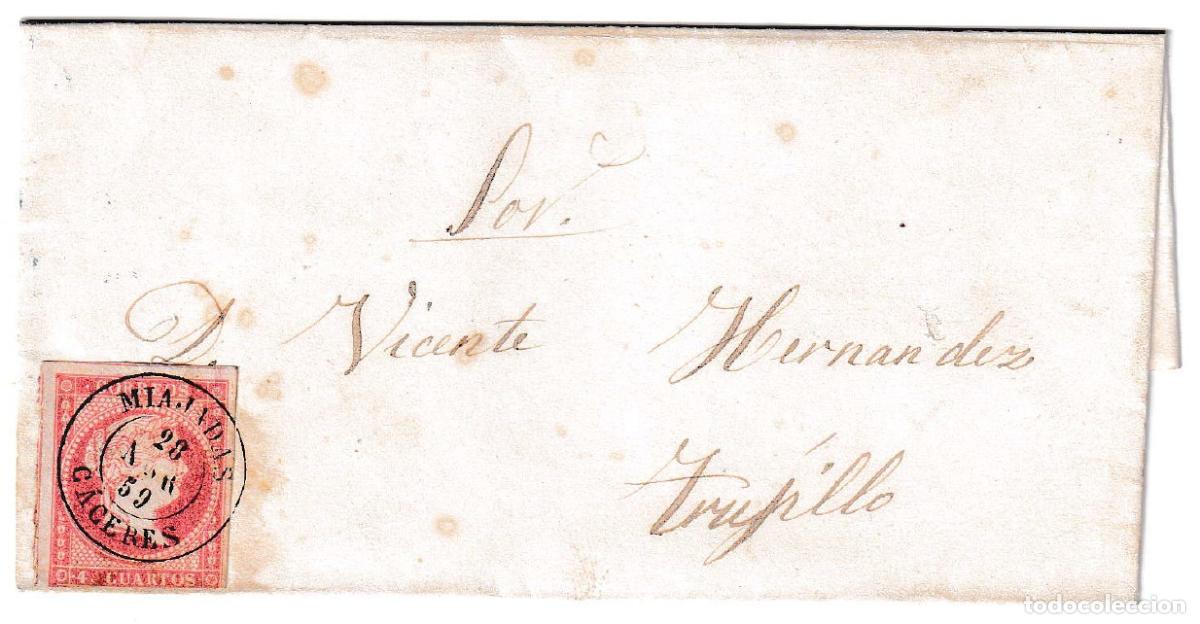 Por.
D. Vicente Hernandez
Trujillo
CORREOS
MIAJADAS
28
ABR
59
CÁCERES
4 CUARTOS
todocoleccion